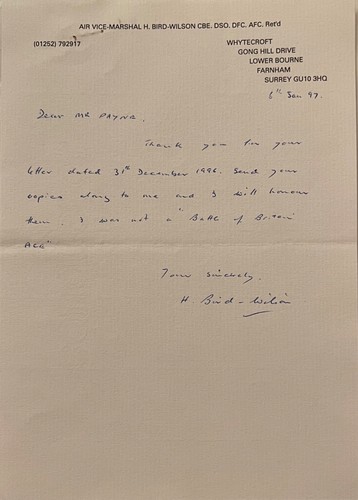 AIR VICE-MARSHAL H. BIRD-WILSON CBE. DSO. DFC. AFC. Ret'd
(01252) 792917
WHYTECROFT
GONG HILL DRIVE
LOWER BOURNE
FARNHAM
SURREY GU10 3HQ
6th Jan 97.
Dear Mr PAYNE.
Thank you for your
letter dated 31st December 1996. Send your
copies along to me and I will honour
them. I was not a "Battle of Britain
ACE"
Yours sincerely.
H. Bird-Wilson